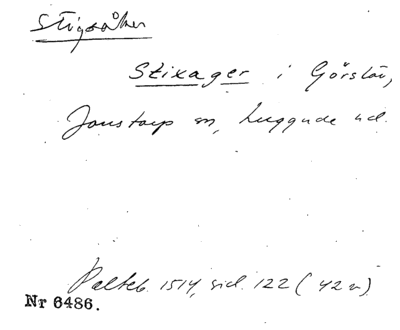 Stigsåker
Stixager i Görslöv,
Jonstorp sn, Luggude hd.
Palteb. 1514, sid. 122 (42 v)
Nr 6486.